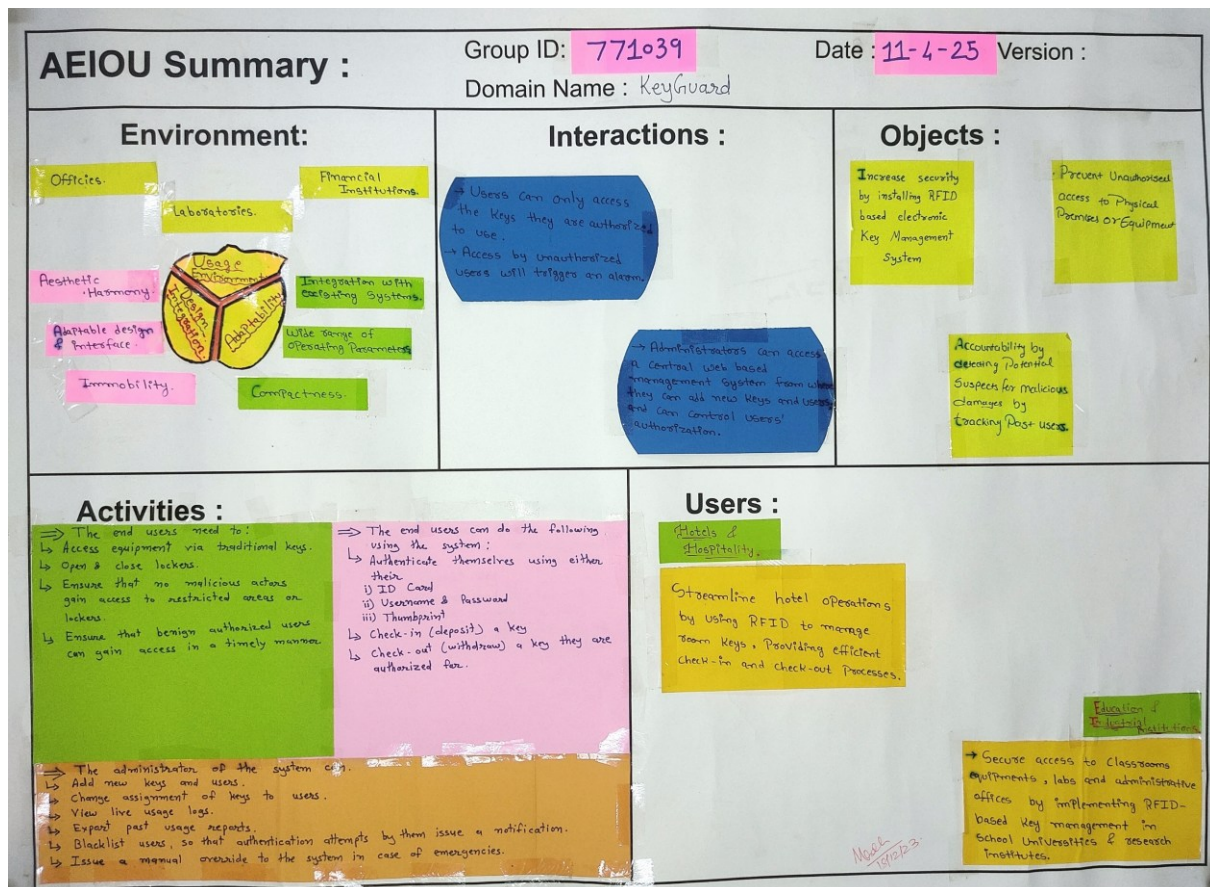 AEIOU Summary :
Group ID: 771039
Date : 11-4-25 Version :
Domain Name : KeyGuard
Environment:
Officies.
Financial
Institutions.
Laboratories.
Usage
Environment
Design
Integration
Adaptability
Aesthetic
Harmony.
Adaptable design
& interface.
Immobility.
Integration with
existing Systems.
Wide range of
Operating Parameters
Compactness.
Interactions :
→ Users can only access
the keys they are authorized
to use.
→ Access by unauthorized
users will trigger an alarm.
→ Administrators can access
a central web based
management System from where
they can add new keys and users
and can control users'
authorization.
Objects :
Increase security
by installing RFID
based electronic
Key Management
System
Prevent Unauthorised
access to Physical
Premises or Equipment
Accountability by
Potential
Suspects for malicious
damages by
tracking Past users.
Activities :
⇒ The end users need to:
↳ Access equipment via traditional keys.
↳ Open & close lockers.
↳ Ensure that no malicious actors
gain access to restricted areas or
lockers.
↳ Ensure that benign authorized users
can gain access in a timely manner
⇒ The end users can do the following
using the system:
↳ Authenticate themselves using either
their
i) ID Card
ii) Username & Password
iii) Thumbprint
↳ Check-in (deposit) a key
↳ Check-out (withdraw) a key they are
authorized for.
⇒ The administrator of the system can.
↳ Add new keys and users.
↳ Change assignment of keys to users.
↳ View live usage logs.
↳ Export past usage reports.
↳ Blacklist users, so that authentication attempts by them issue a notification.
↳ Issue a manual override to the system in case of emergencies.
Users :
Hotels &
Hospitality.
Streamline hotel operations
by using RFID to manage
room keys, Providing efficient
check-in and check-out Processes.
Education &
Industrial Institutions
→ Secure access to Classrooms
equipments, labs and administrative
offices by implementing RFID-
based Key management in
School Universities & research
institutes.
15/12/23